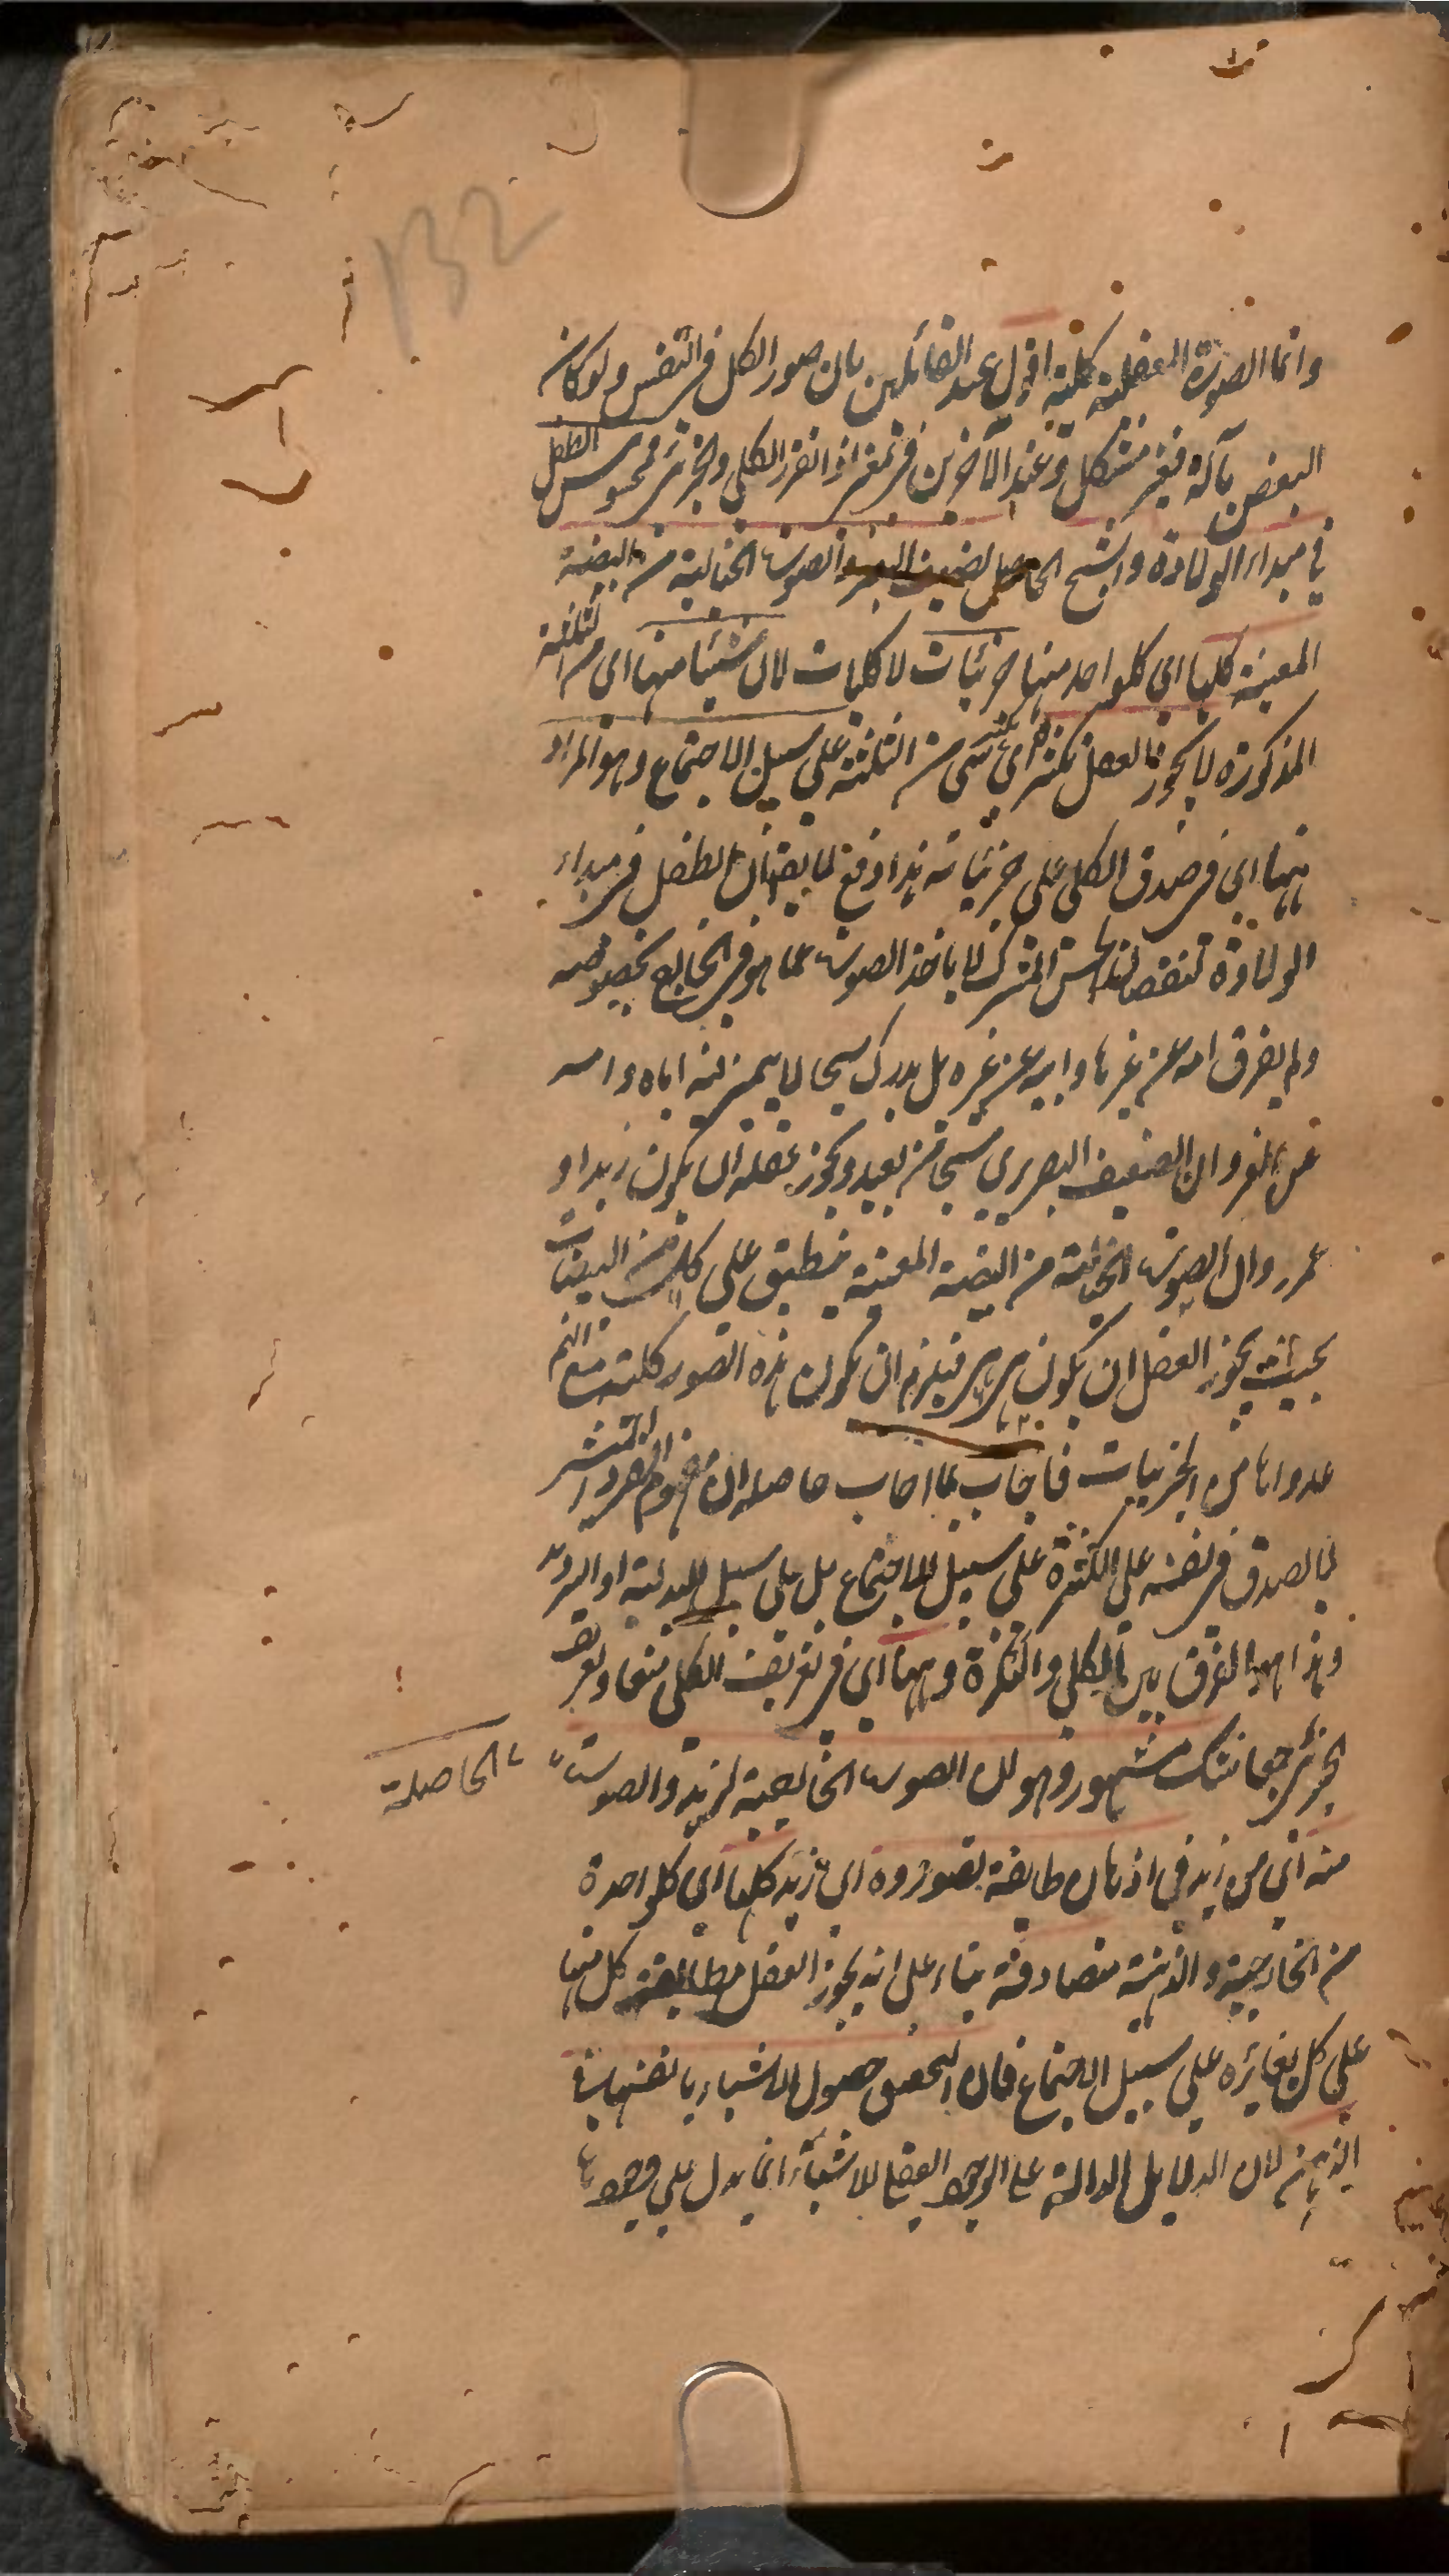 132
وانما الصورة العقلية كلية اقول عند القائلين بان صور الكل في النفس ولو كان
البعض بآلة فغير مشكل وعند الآخرين في تمغر اذ انقر الكلي والجزئي محسوس الطفل
في مبداء الولادة والشبح الحاصل لضعيف البصر والصورة الخيالية من البيضة
المعينة كلها اي كلواحد منها جزئيات لا كليات لان شيئا منها اي من الثلثة
المذكورة لا يجوز العقل تكثره اي تكثر شئ من الثلثة على سبيل الاجتماع وهو المراد
ههنا اي في صدق الكلي على جزئياته هذا دفع لما يقال ان الطفل في مبداء
الولادة لنقصان الحس المشترك لا ياخذ الصورة عما هو في الخارج بخصوصه
ولم يفرق امه عن غيرها وابيه عن غيره بل يدرك شبحا لا يميز فيه اباه وامه
عن الغير وان الضعيف البصر يرى شبحا من بعيد ويجوز عقله ان يكون زيدا او
عمر وان الصورة الخيالية من البيضة المعينة ينطبق على كل من البيضات
بحيث يجوز العقل ان يكون هي هي فيلزم ان يكون هذه الصور كلية مع انهم
عدوها من الجزئيات فاجاب بما اجاب حاصله ان مفهوم الفرد المنتشر
لا يصدق في نفسه على الكثرة على سبيل الاجتماع بل على سبيل البدلية او الترديد
وهذا هو الفرق بين الكلي والنكرة وههنا اي في تعريف الكلي منعا وتعريف
الجزئي جمعا شك مشهور وهو ان الصورة الخارجية لزيد والصورة الحاصلة
منه اي من زيد في اذهان طايفة تصوروه اي زيد كلها اي كلواحدة
من الخارجية والذهنية متصادقة بناء على انه يجوز العقل مطابقة كل منها
على كل يغايره على سبيل الاجتماع فان التحقيق حصول الاشياء بانفسها في
الذهن لان الدلايل الدالة على الوجود العقلي للاشياء انما يدل على وجودها